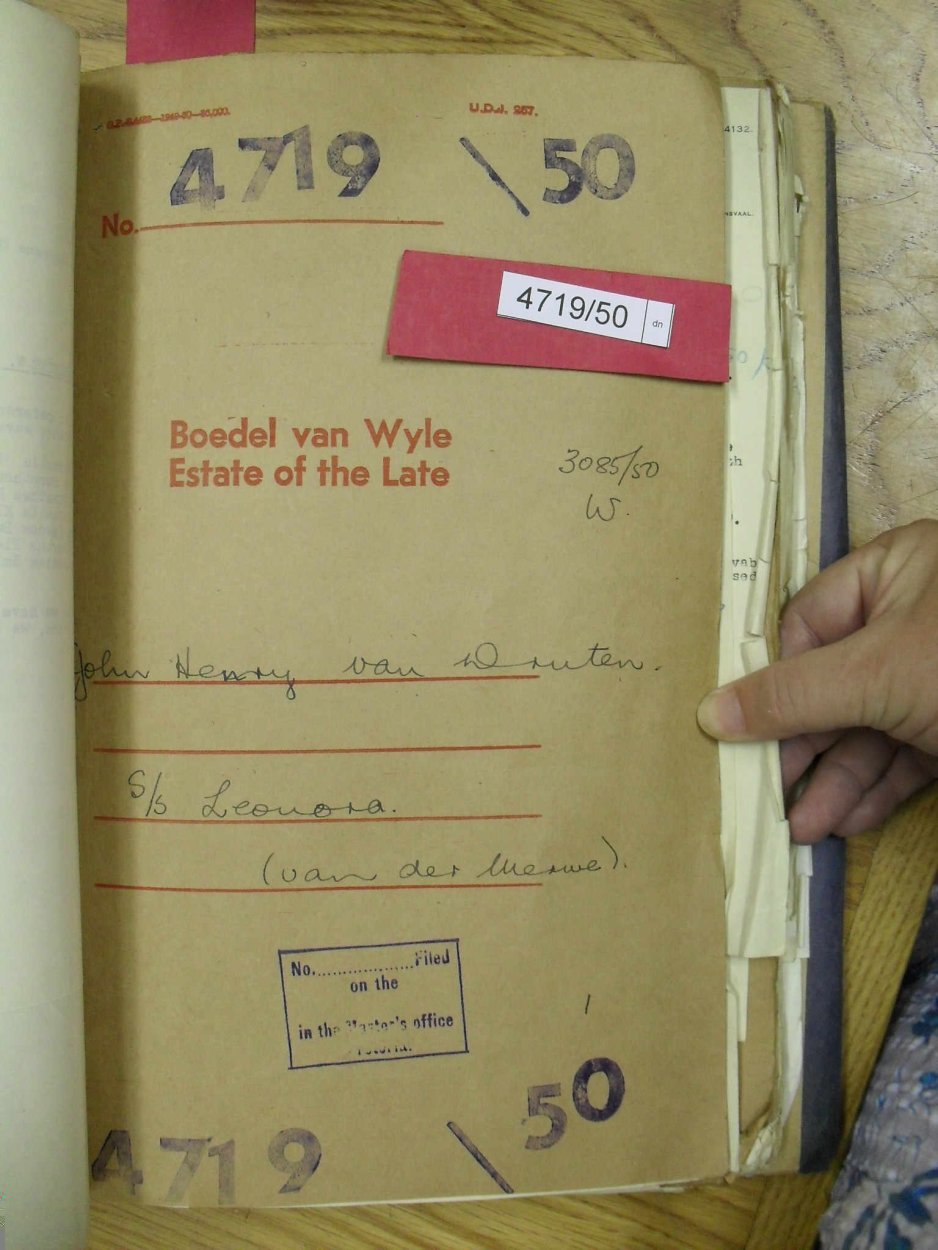 U.D.J. 257.
4719 \ 50
No.
4719/50 dn
Boedel van Wyle
Estate of the Late
3085/50
W.
John Henry van Druten.
S/s Leonora.
(van der Merwe).
No...................Filed
on the
in the Master's office
1
4719 \ 50
4132.
NSVAAL.
vab
sed